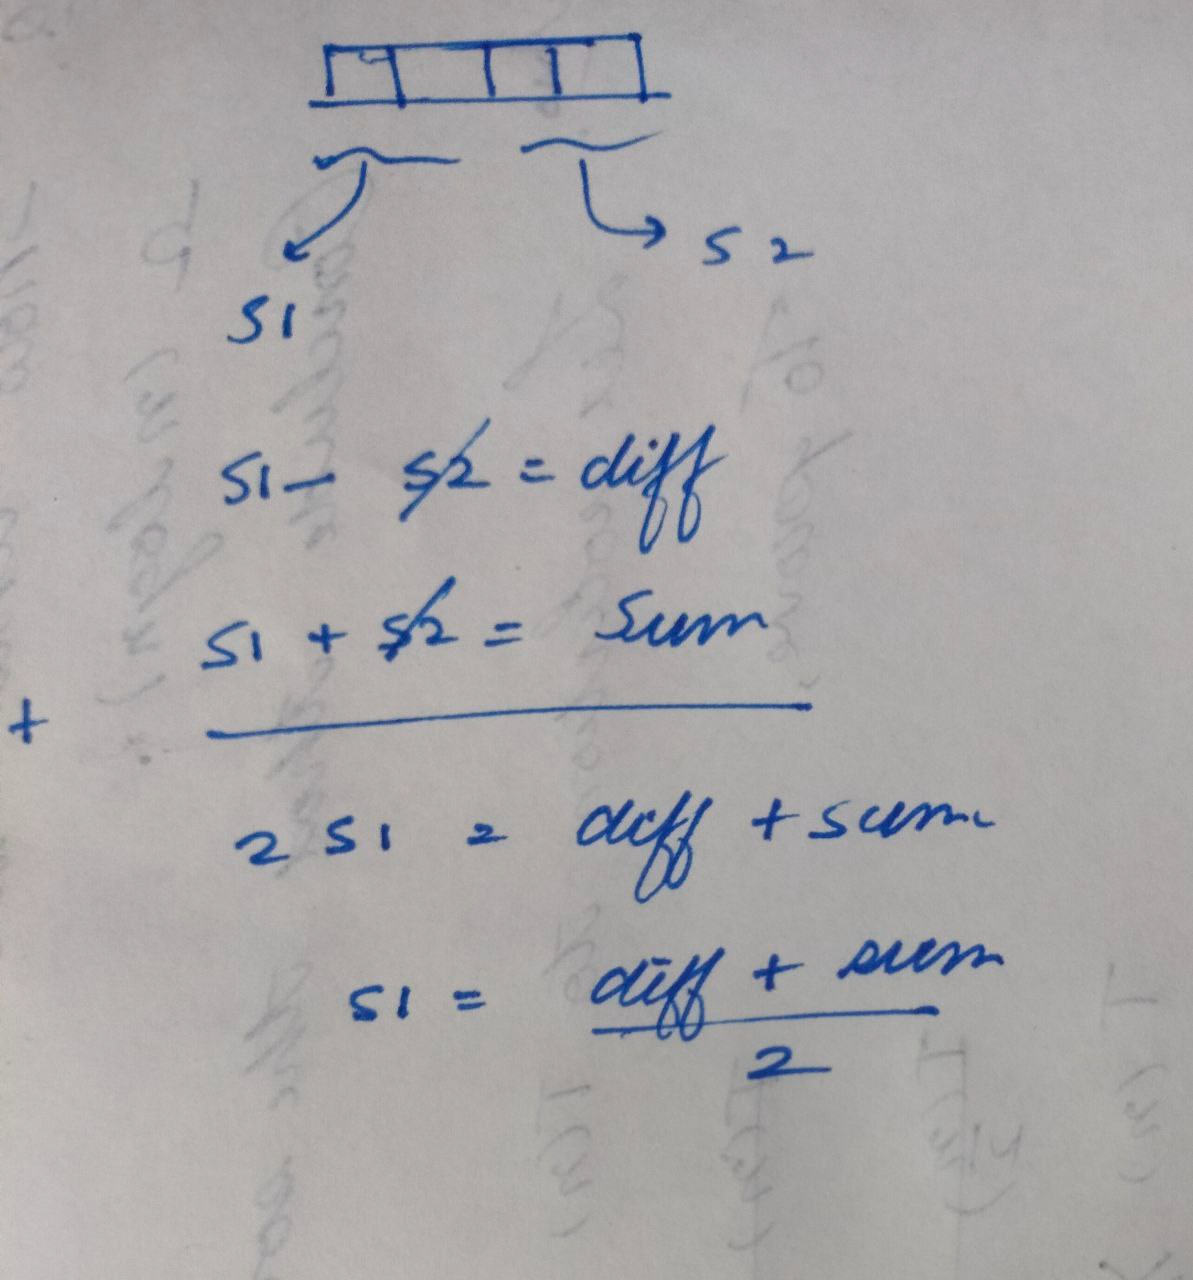 S2
S1
S1 - S2 = diff
S1 + S2 = Sum
+
2 S1 = diff + sum
S1 = diff + sum
2